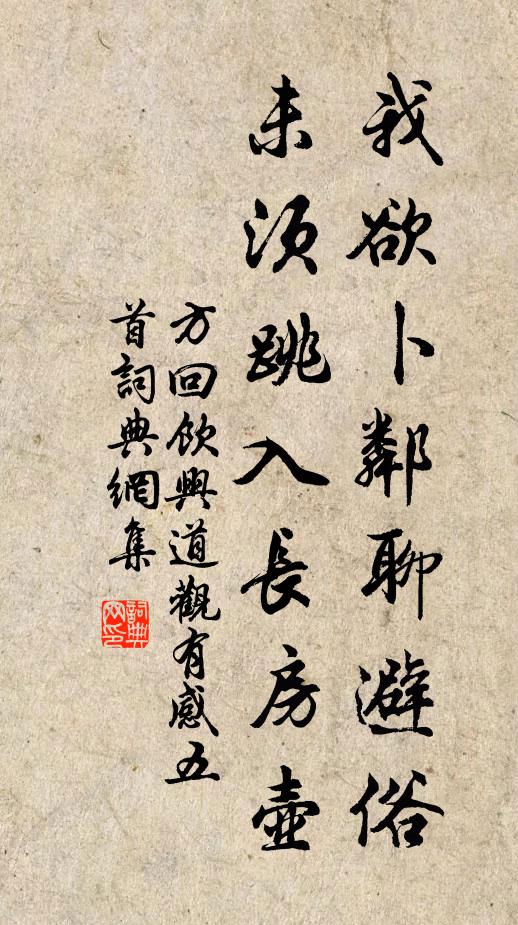 我欲卜鄰聊避俗
未須跳入長房壺
方回飲興道觀有感五
首詞典網集
詞典
网印